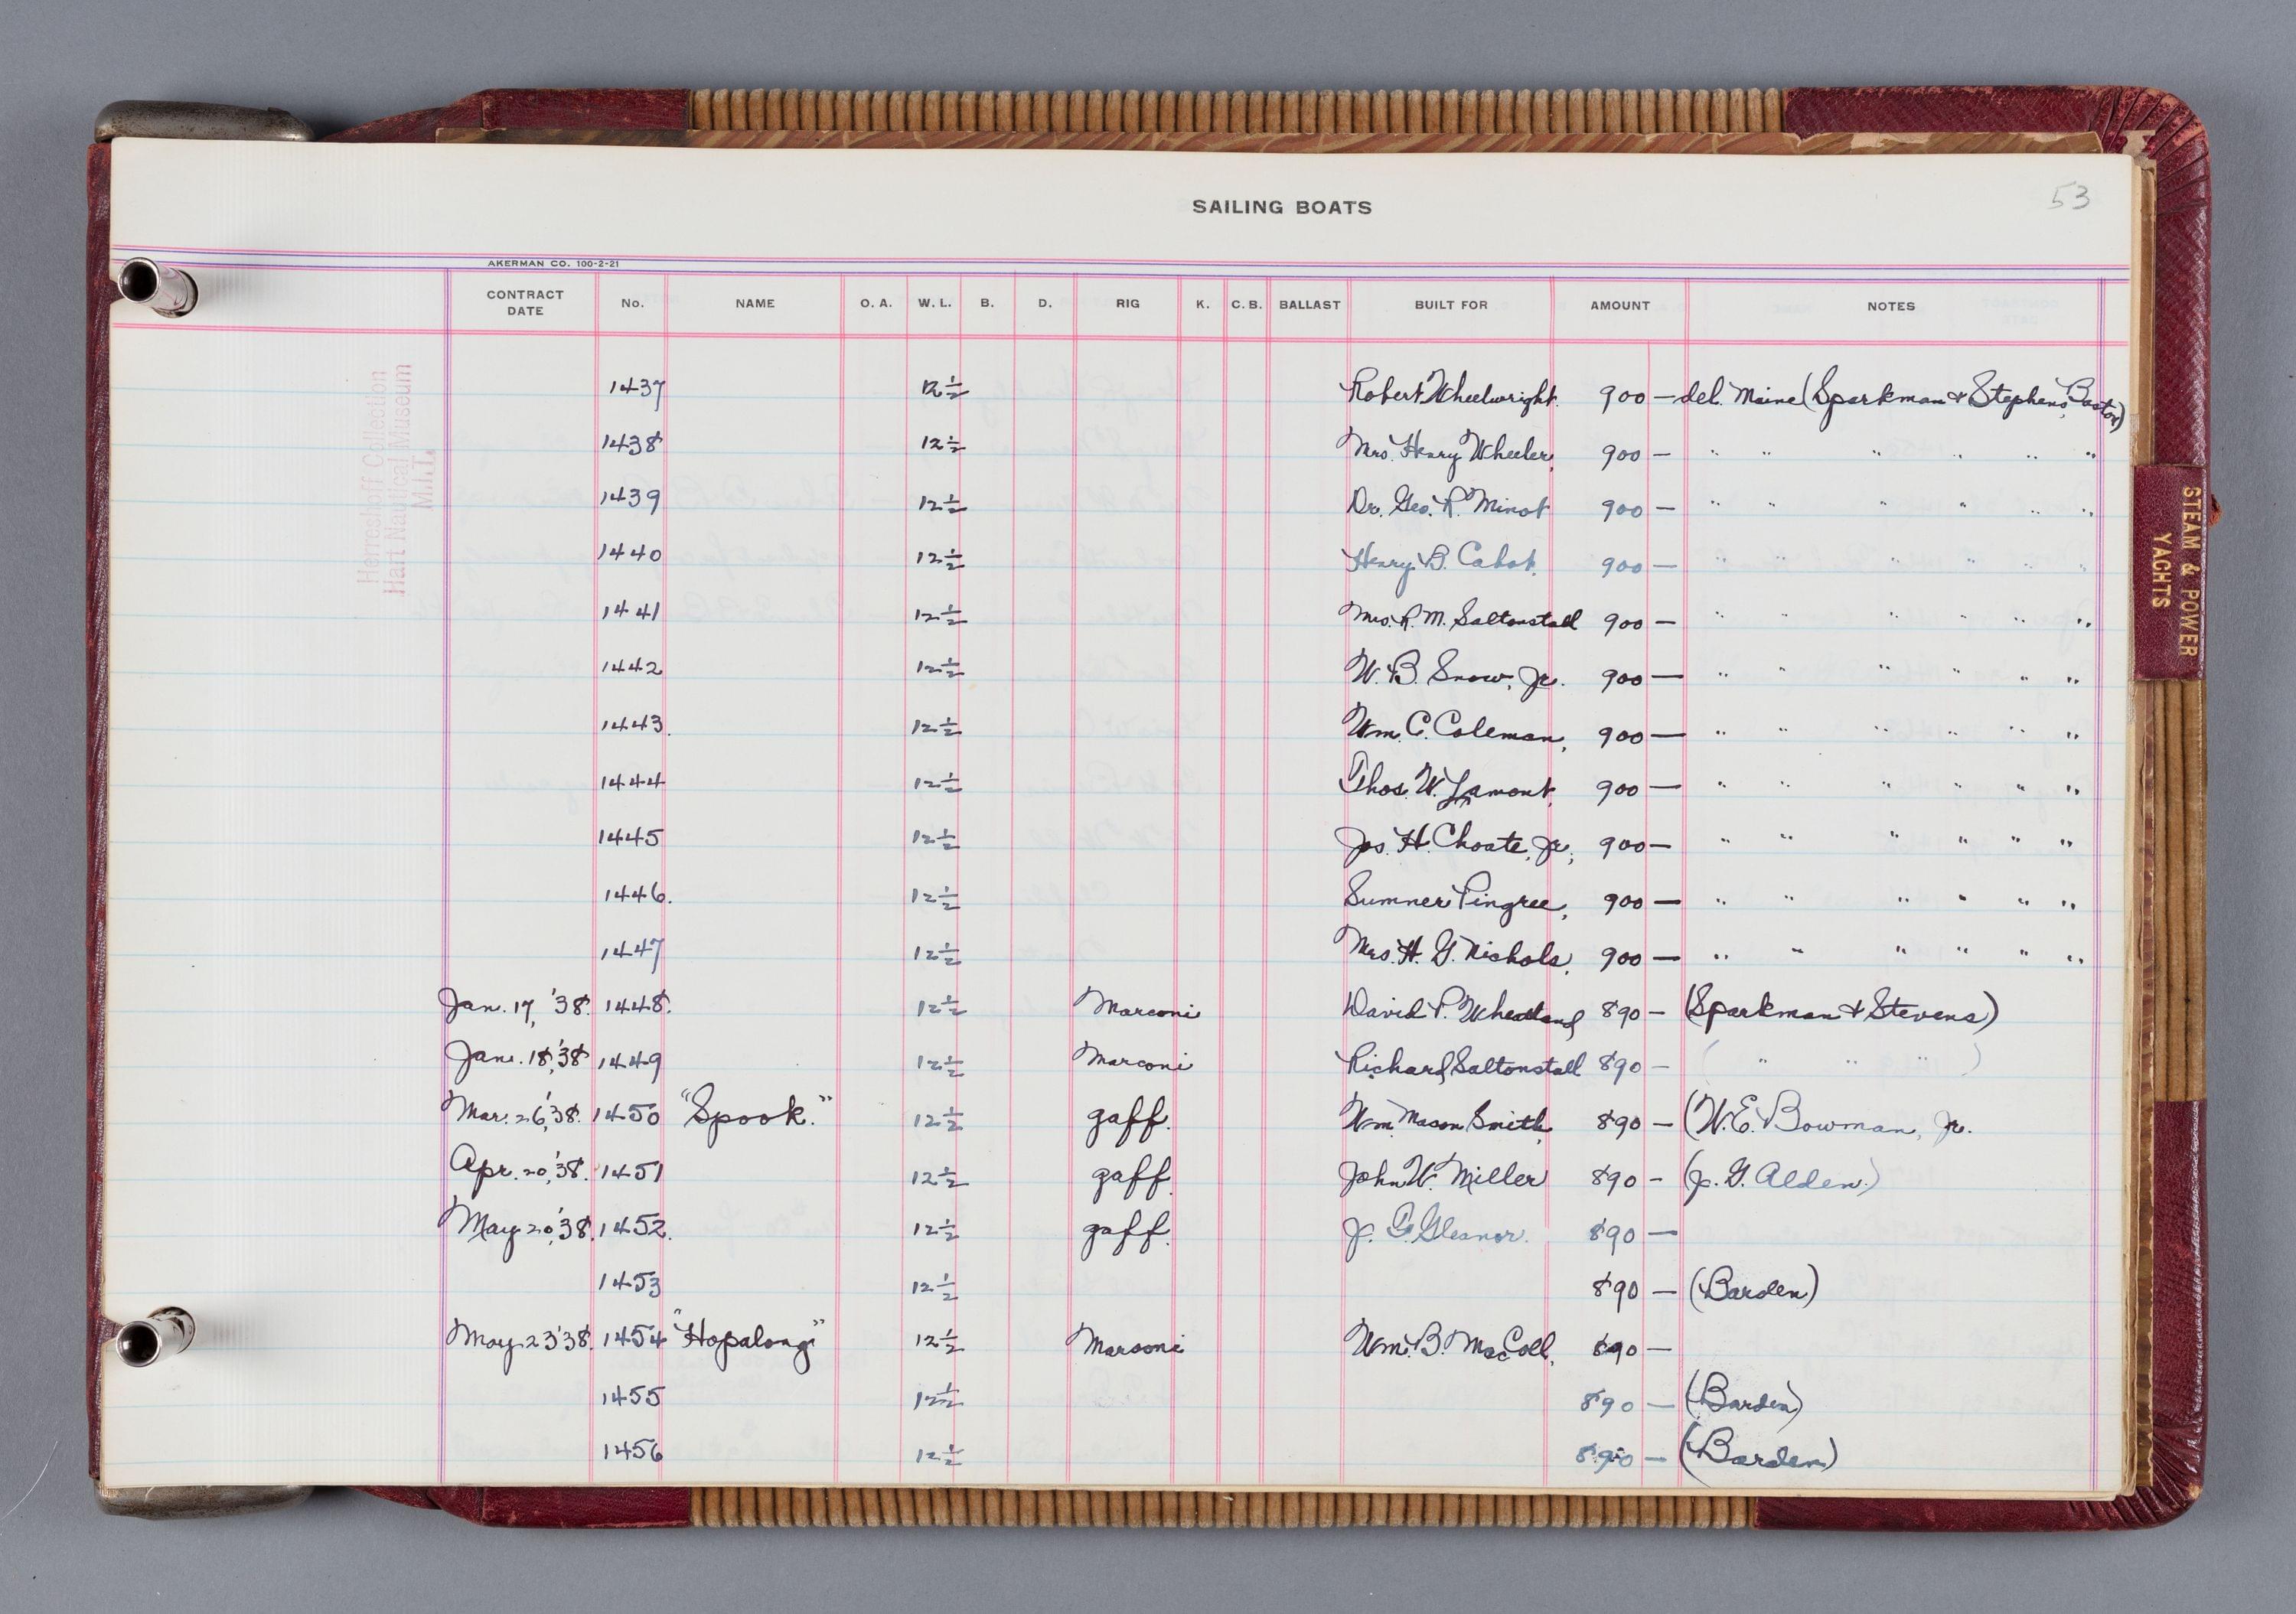 SAILING BOATS
53
AKERMAN CO. 100-2-21
CONTRACT DATE No. NAME O. A. W. L. B. D. RIG K. C. B. BALLAST BUILT FOR AMOUNT NOTES
1437 12½ Robert Wheelwright. 900 — del. Maine (Sparkman & Stephens, Boston)
1438 12½ Mrs. Henry Wheeler, 900 — " " " " " "
1439 12½ Dr. Geo. R. Minot 900 — " " " " " "
1440 12½ Henry B. Cabot, 900 — " " " " " "
1441 12½ Mrs. R. M. Saltonstall 900 — " " " " " "
1442 12½ W. B. Snow, Jr. 900 — " " " " " "
1443. 12½ Wm. C. Coleman, 900 — " " " " " "
1444 12½ Thos. W. Lamont, 900 — " " " " " "
1445 12½ Jos. H. Choate, Jr., 900 — " " " " " "
1446. 12½ Sumner Pingree, 900 — " " " " " "
1447 12½ Mrs. H. G. Nichols, 900 — " " " " " "
Jan. 17, '38. 1448. 12½ Marconi David P. Wheatland 890 — (Sparkman & Stevens)
Jan. 18, '38 1449 12½ Marconi Richard Saltonstall 890 — ( " " " )
Mar. 26, '38. 1450 "Spook." 12½ gaff. Wm. Mason Smith, 890 — (W. E. Bowman, Jr.
Apr. 20, '38. 1451 12½ gaff. John W. Miller 890 — (J. G. Alden.)
May 20, '38. 1452. 12½ gaff. J. G. 890 —
1453 12½ 890 — (Barden)
May 23 '38. 1454 "Hopalong" 12½ Marconi Wm. B. MacColl, 890 —
1455 12½ 890 — (Barden)
1456 12½ 890 — (Barden)
Herreshoff Collection
Hart Nautical Museum
M.I.T.
STEAM & POWER
YACHTS